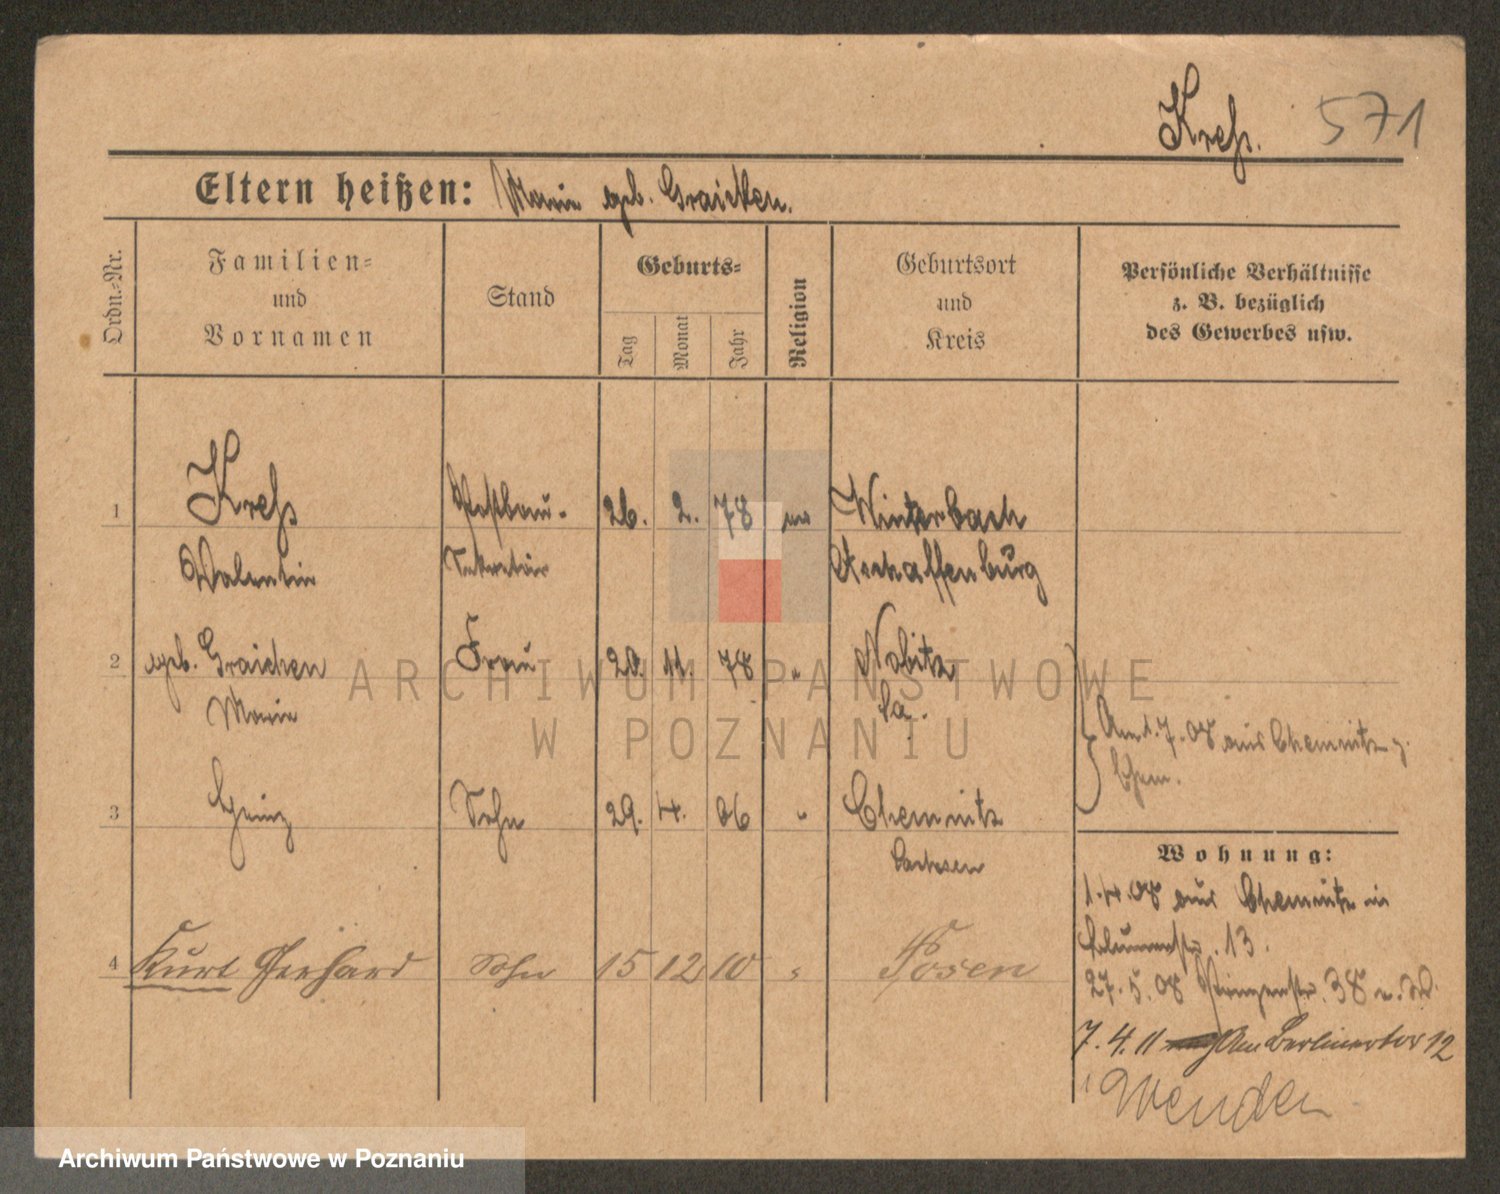 Kreß. 571
Eltern heißen: Marie geb. Graichen.
Ordn.-Nr.
Familien-
und
Vornamen
Stand
Geburts-
Tag
Monat
Jahr
Religion
Geburtsort
und
Kreis
Persönliche Verhältnisse
z. B. bezüglich
des Gewerbes usw.
1 Kreß Postbau- 26. 2. 78 ev Winterbach
Valentin Sekretär Aschaffenburg
2 geb. Graichen Frau 20. 11. 78 " Nobitz
Marie Sa.
Am 1.7.08 aus Chemnitz z.
3 Heinz Sohn 29. 4. 06 " Chemnitz
Sachsen
Wohnung:
1.4.08 aus Chemnitz in
Blumenstr. 13.
4 Kurt Gerhard Sohn 15 12 10 " Posen
27.5.08 Prinzenstr. 38
7.4.11 Am Berlinertor 12
Wenden
ARCHIWUM PAŃSTWOWE
W POZNANIU
Archiwum Państwowe w Poznaniu